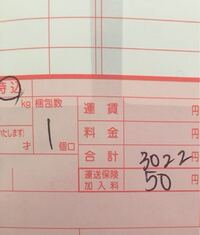 持込
kg 梱包数 運賃 円
1 個口 料金 円
いたします)
才 合計 3022 円
運送保険
加入料 50 円